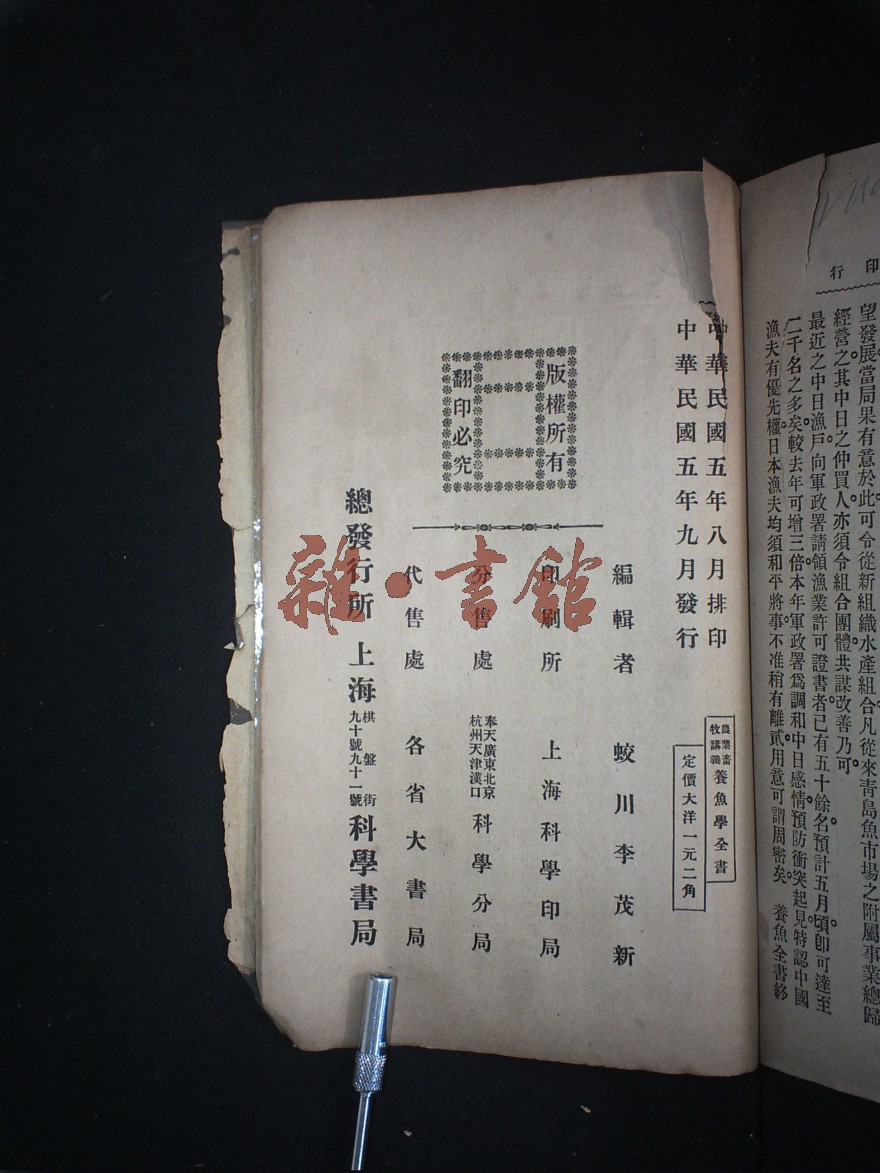 印行
望發展當局果有意於此可令從新組織水產組合凡從來靑島魚市場之附屬事業總歸
經營之其中日之仲買人亦須令組合團體共謀改善乃可
最近之中日漁戶向軍政署請領漁業許可證書者已有五十餘名預計五月頃卽可達至
二千名之多矣較去年可增三倍本年軍政署爲調和中日感情預防衝突起見特認中國
漁夫有優先權日本漁夫均須和平將事不准稍有離貳用意可謂周密矣 養魚全書終
中華民國五年八月排印
中華民國五年九月發行
農業畜牧講義 養魚學全書
定價大洋一元二角
編輯者 蛟川李茂新
印刷所 上海科學印局
分售處 奉天廣東北京杭州天津漢口 科學分局
代售處 各省大書局
總發行所 上海 棋盤街九十號九十一號 科學書局
版權所有
翻印必究
雜·書館